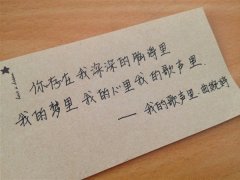 你存在 我深深的脑海里
我的梦里 我的心里 我的歌声里.
—— 我的歌声里 曲婉婷